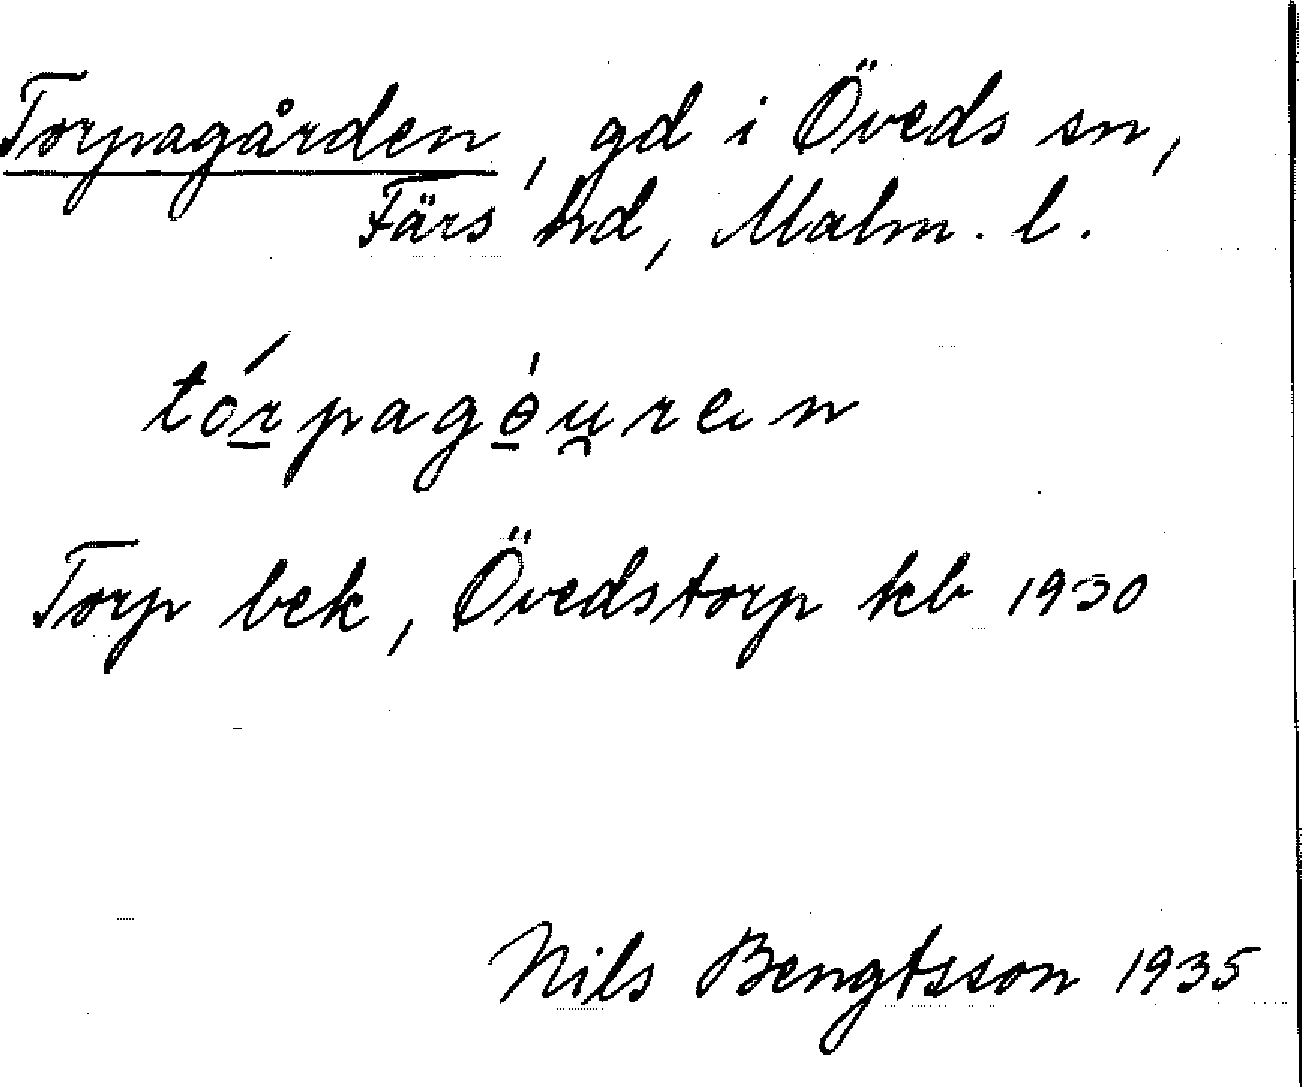 Torpagården, gd i Öveds sn,
Färs hd, Malm. l.
tórpagɵ́u̯ren
Torp bek, Övedstorp kb 1930
Nils Bengtsson 1935